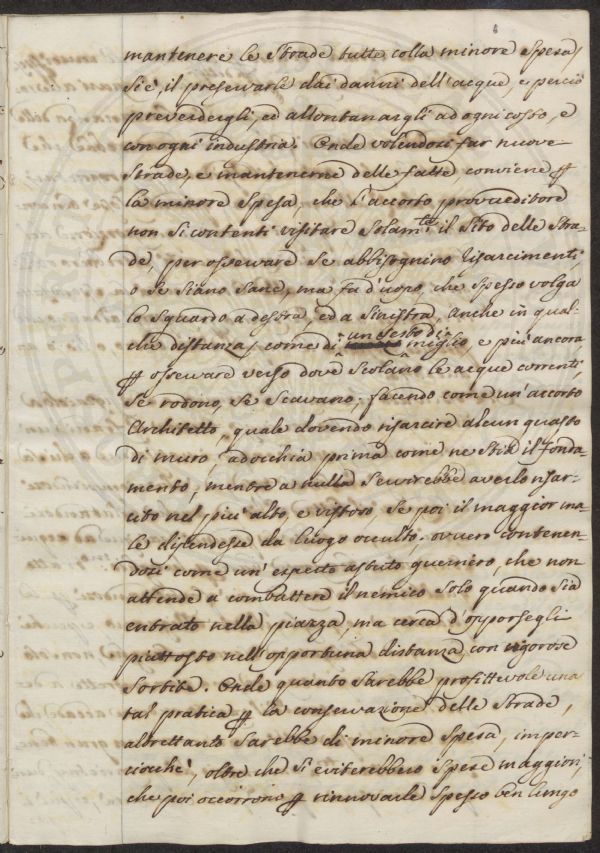 6
mantenere le Strade tutte colla minore spesa,
si è, il preservarle dai danni dell'acque, e perciò
prevedergli, ed allontanargli ad ogni costo, e
con ogni industria. Onde volendosi far nuove
strade, e mantenerne delle fatte, conviene ꝑ
la minore spesa, che l'accorto provveditore
non si contenti visitare solam.te il sito delle Stra-
de, per osservare se abbisognino risarcimenti,
o se siano sane, ma fa d'uopo, che spesso volga
lo sguardo a destra, ed a sinistra, anche in qual-
che distanza, come di un sesto di miglio, e più ancora
ꝑ osservare verso dove scolano le acque correnti,
se rodono, se scavano; facendo come un'accorto
Architetto, quale dovendo risarcire alcun guasto
di muro, adocchia prima come ne stia il fonda-
mento, mentre a nulla servirebbe averlo risar-
cito nel più alto, e vistoso, se poi il maggior ma-
le dipendesse da luogo occulto; ovvero contenen-
dosi come un'esperto astuto guerriero, che non
attende a combattere il nemico solo quando sia
entrato nella piazza, ma cerca d'opporsegli
piuttosto nell'opportuna distanza con vigorose
sortite. Onde quanto sarebbe profittevole una
tal pratica ꝑ la conservazione delle Strade,
altrettanto sarebbe di minore spesa, imper-
ciocchè, oltre che si eviterebbero spese maggiori,
che poi occorrono ꝑ rinnovarle spesso ben lungo